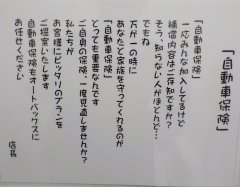 「自動車保険」
「自動車保険」
一応みんな加入してるけど
補償内容はご存知ですか？
そう、知らない人がほとんど…
でもね
万が一の時に
あなたと家族を守ってくれるのが
「自動車保険」
とっても重要なんです
ご自身の保険、一度見直しませんか？
私たちが
お客様にピッタリのプランを
ご提案いたします
自動車保険もオートバックスに
お任せください
店長